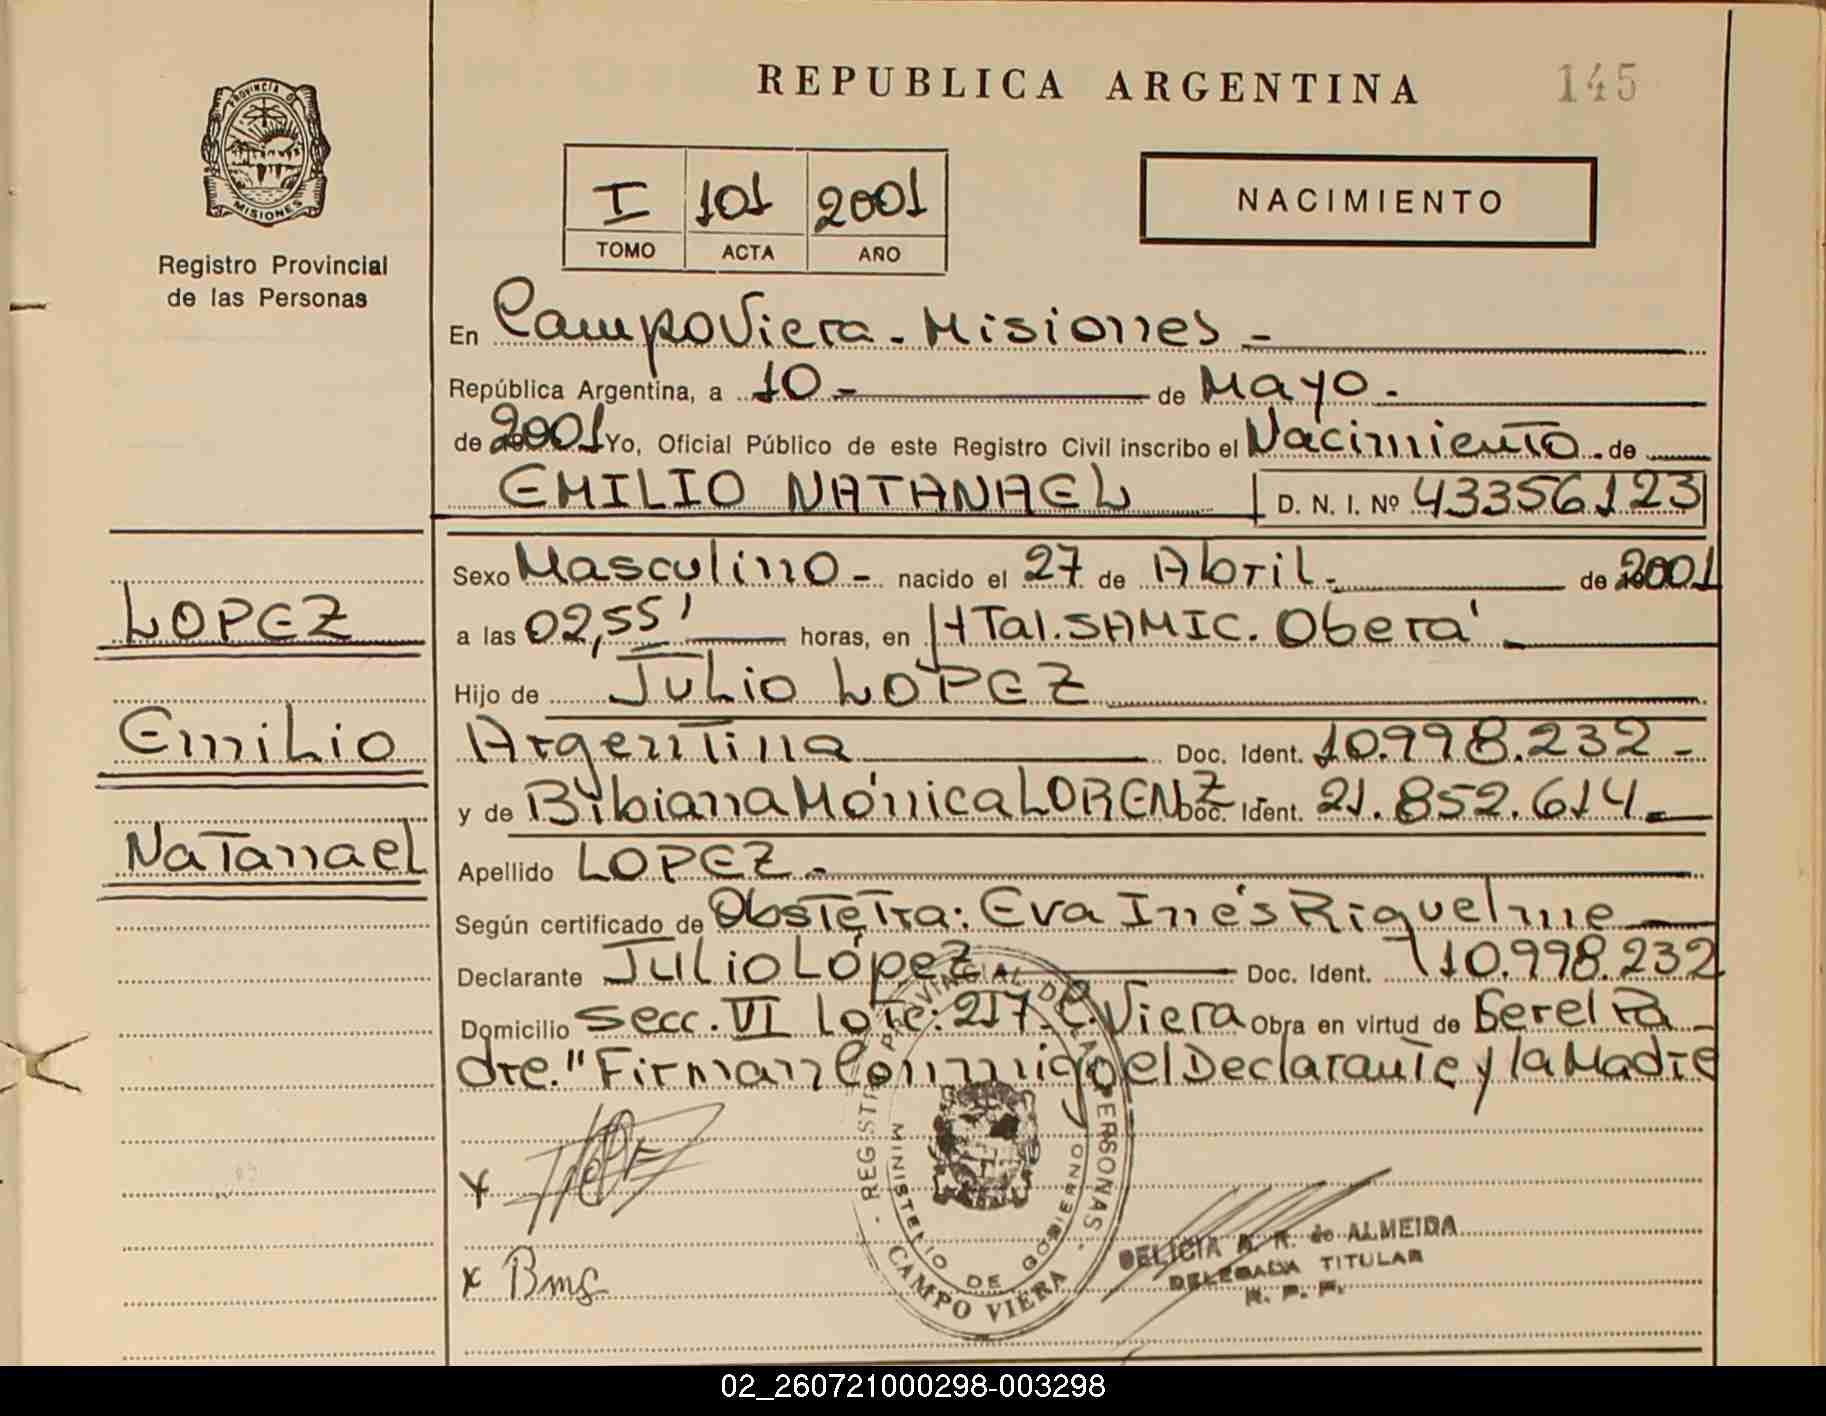 REPUBLICA ARGENTINA
145
PROVINCIA DE
MISIONES
Registro Provincial
de las Personas
I 101 2001
TOMO ACTA AÑO
NACIMIENTO
En Campo Viera - Misiones -
República Argentina, a 10 - de Mayo -
de 2001 Yo, Oficial Público de este Registro Civil inscribo el Nacimiento de
EMILIO NATANAEL D. N. I. Nº 43356123
Sexo Masculino - nacido el 27 de Abril - de 2001
a las 02,55' horas, en HTal. SAMIC. Oberá
Hijo de JULIO LOPEZ
Argentina Doc. Ident. 10.998.232 -
y de Bibiana Mónica LORENZ Doc. Ident. 21.852.614 -
Apellido LOPEZ -
Según certificado de Obstetra: Eva Inés Riquelme
Declarante Julio López Doc. Ident. 10.998.232
Domicilio Secc. VI Lote: 217 C. Viera Obra en virtud de Ser el Pa
dre." Firman Conmigo el Declarante y la Madre
LOPEZ
Emilio
Natanael
x
x Bmg
REGISTRO PROVINCIAL DE LAS PERSONAS
MINISTERIO DE GOBIERNO
CAMPO VIERA
DELICIA A. R. de ALMEIDA
DELEGADA TITULAR
R. P. P.
02_260721000298-003298